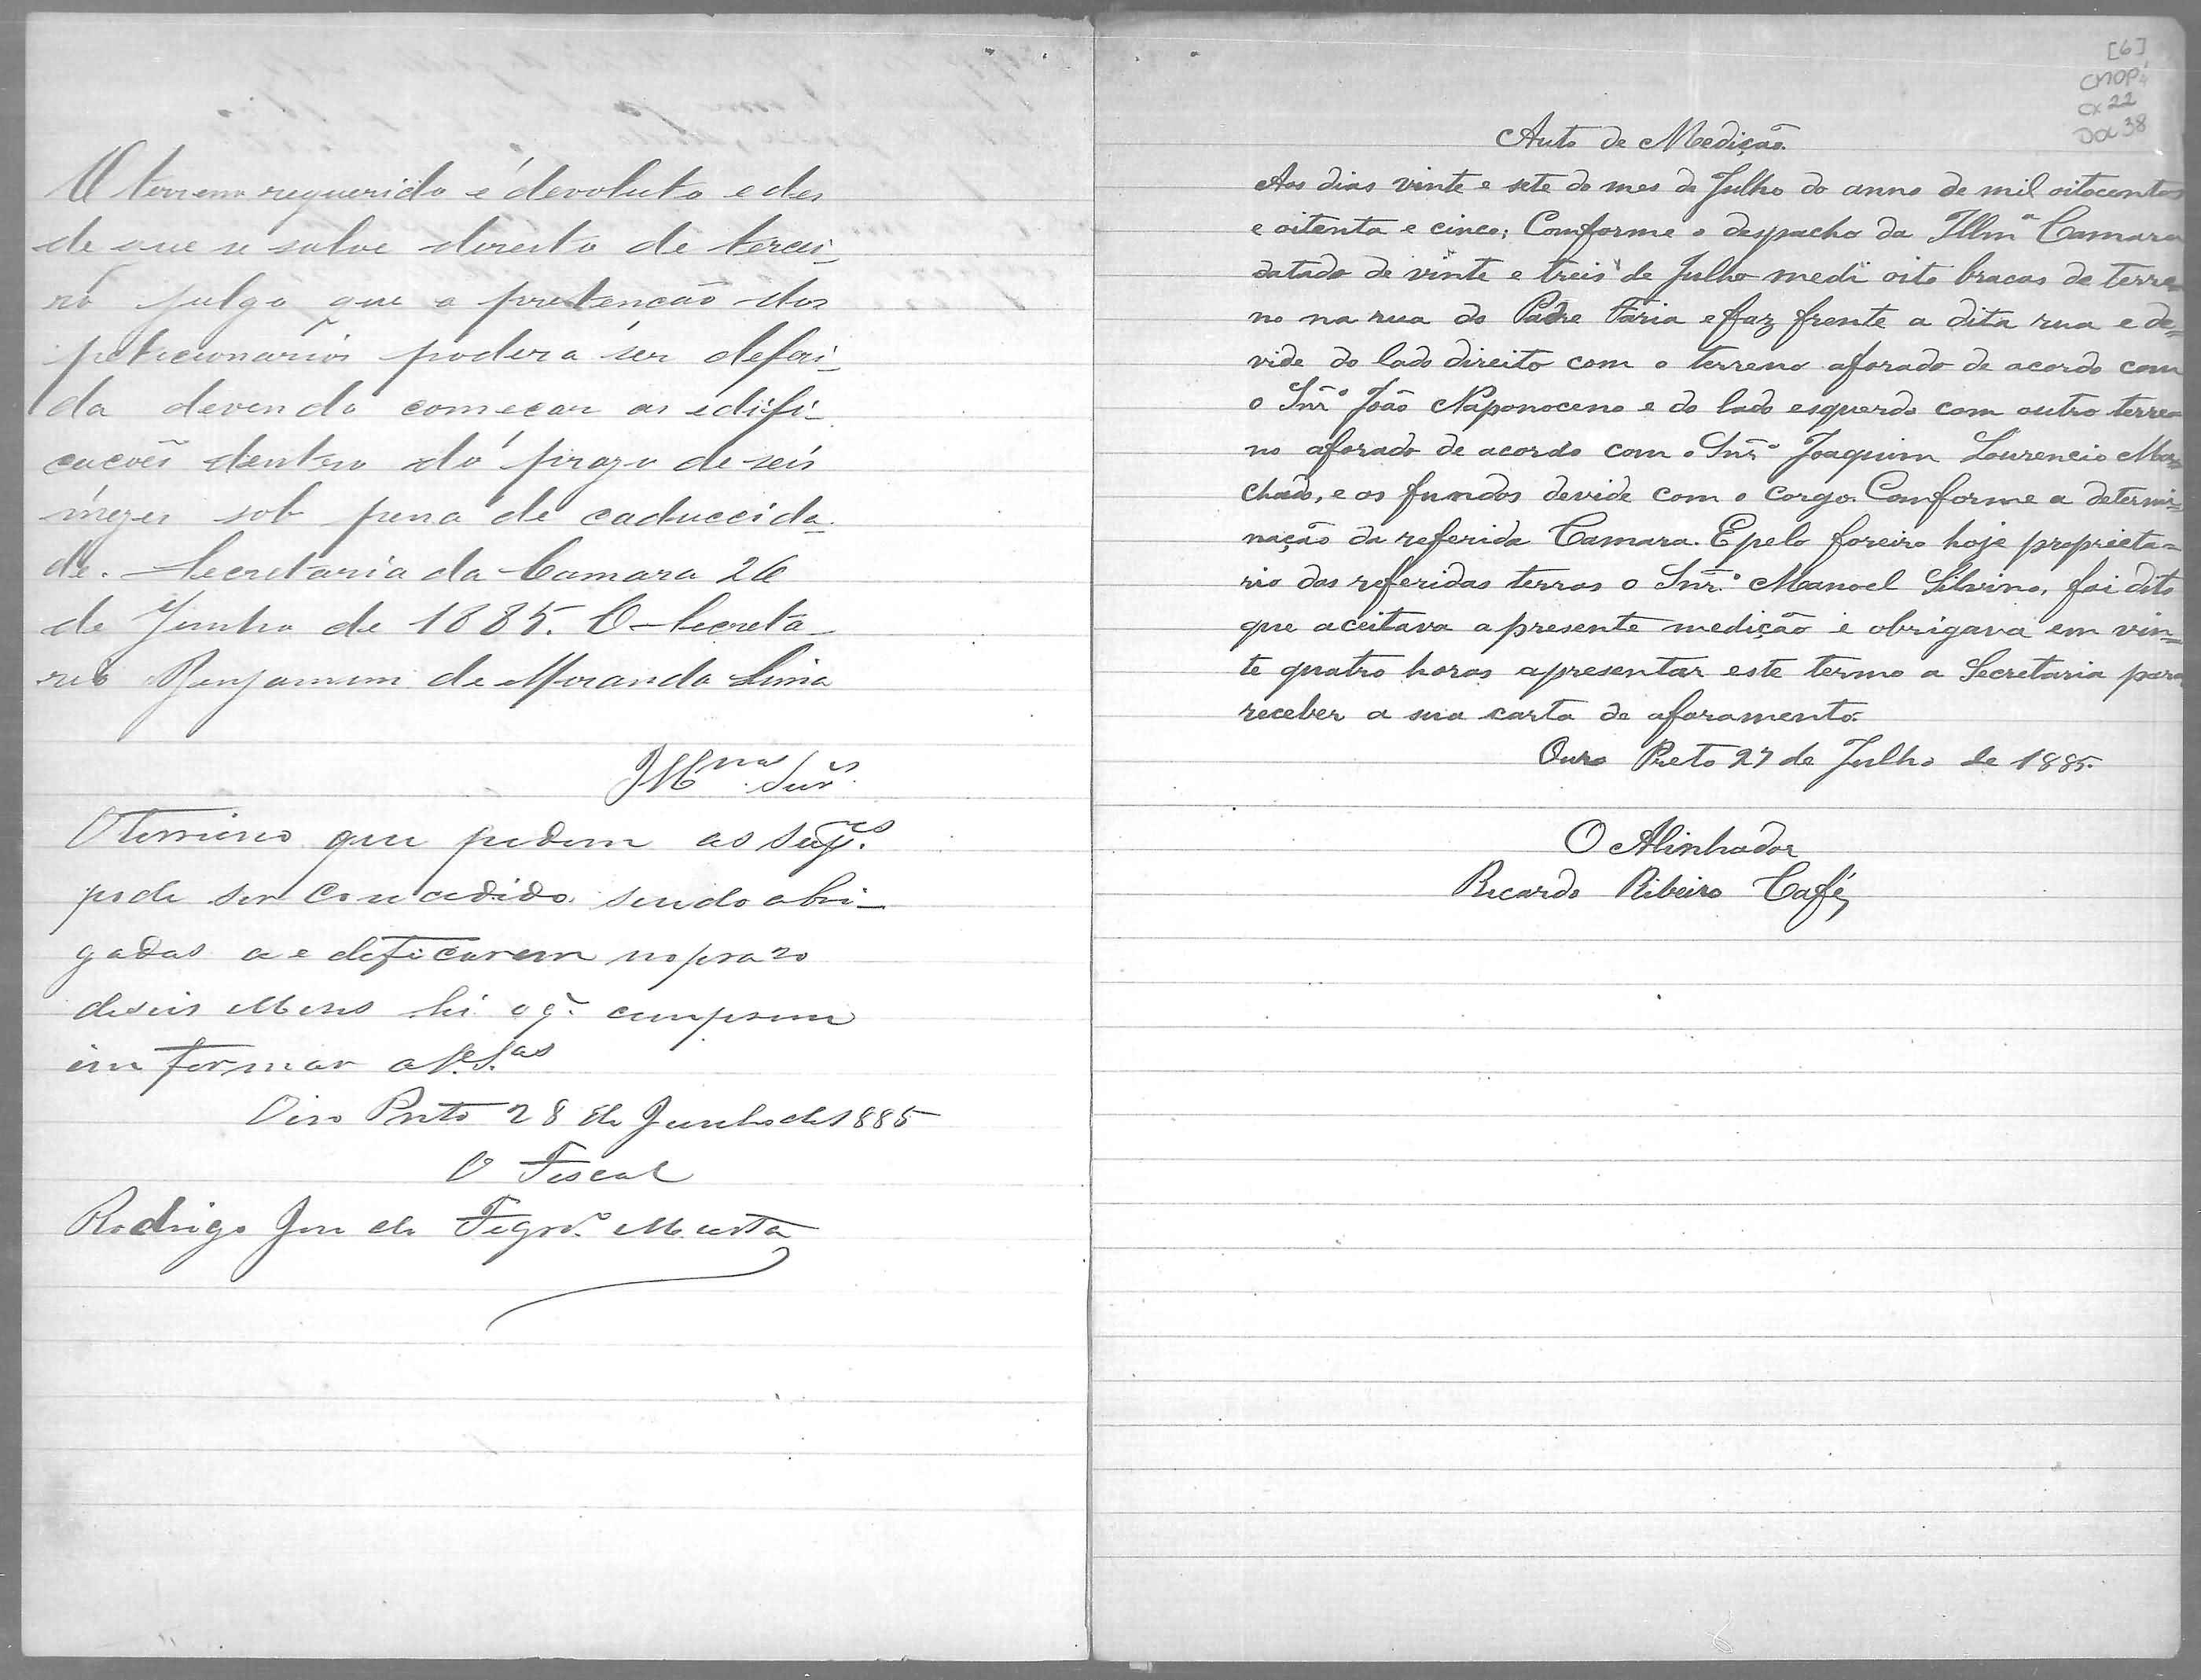 O terreno requerido é devoluto e des
de que se salve direito de tercei_
ro julgo que a pretenção dos
peticionarios poderá ser deferi_
da devendo começar as edifi_
cacões dentro do prazo de seis
mezes sob pena de caduccida_
de. Secretaria da Camara 26
de Junho de 1885. O Secreta_
rio Benjamim de Miranda Lima
Illmos Snrs.
O terreno que pedem as Supes.
pode ser concedido sendo obri_
gadas a edeficarem no prazo
de seis Meses hé o q. cumpre me
informar a V. Sas
Oiro Preto 28 de Junho de 1885
O Fiscal
Rodrigo José de Figrdo. Murta
[6]
CMOP
CX 22
DOC 38
Auto de Medição.
Aos dias vinte e sete do mes de Julho do anno de mil oitocentos
e oitenta e cinco; Comforme o despacho da Illmª Camara
datado de vinte e treis de Julho medi oito bracas de terre
no na rua do Padre Faria e faz frente a dita rua e de=
vide do lado direito com o terreno aforado de acordo com
o Snrº João Naponoceno e do lado esquerdo com outro terre
no aforado de acordo com o Snrº Joaquim Lourencio Ma
chado, e os fundos devide com o corgo. Comforme a determi=
nação da referida Camara. E pelo foreiro hoje proprieta=
rio das referidas terras o Snr.º Manoel Silvino, foi dito
que aceitava a presente medição e obrigava em vin=
te quatro horas apresentar este termo a Secretaria para
receber a sua carta de aforamento.
Ouro Preto 27 de Julho de 1885.
O Alinhador
Ricardo Ribeiro Café